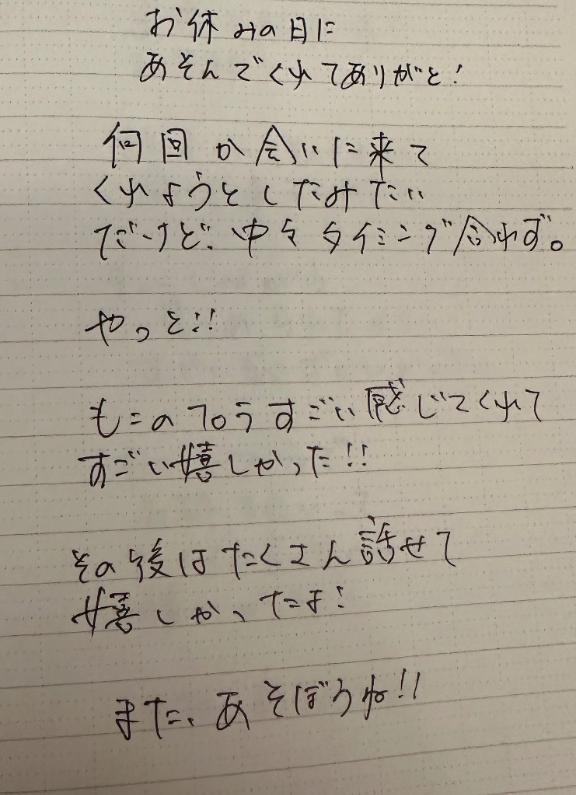 お休みの日に
あそんでくれてありがと!
何回か会いに来て
くれようとしたみたい
だけど、中々タイミング合わず。
やっと!!
すごい感じてくれて
すごい嬉しかった!!
その後はたくさん話せて
嬉しかったよ!
また、あそぼうね!!